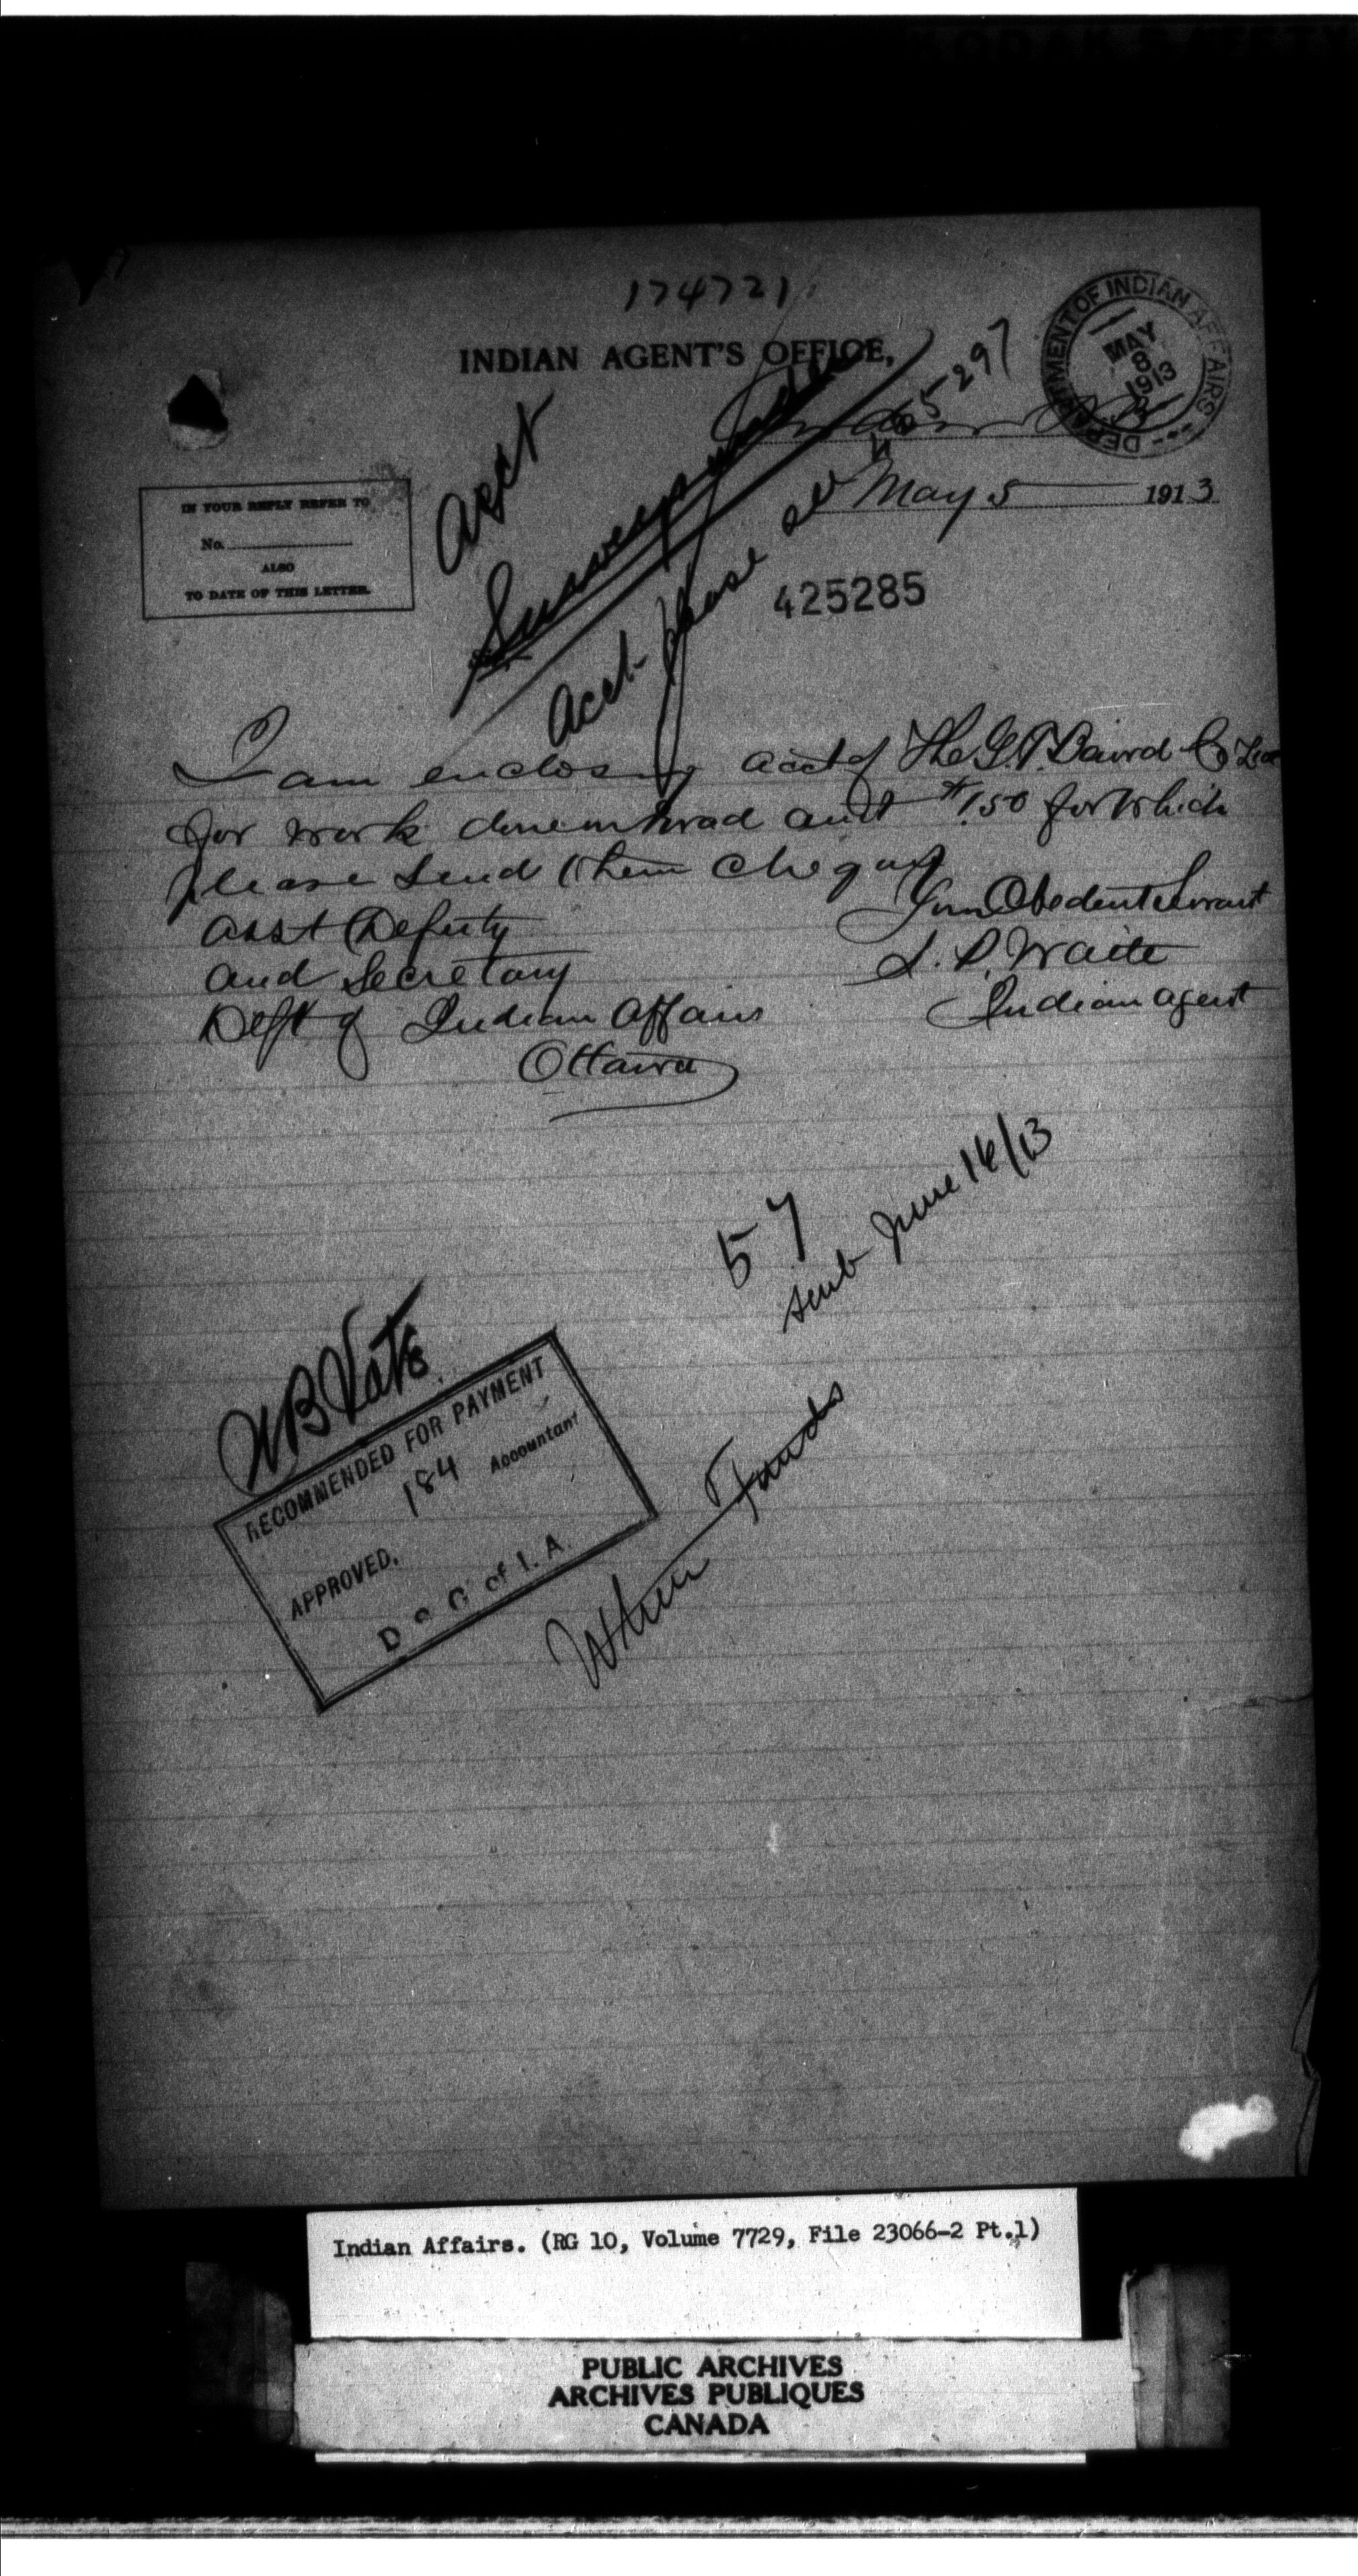 174721
INDIAN AGENT'S OFFICE,
DEPARTMENT OF INDIAN AFFAIRS
MAY
8
1913
Acct
May 5 1913
IN YOUR REPLY REFER TO
No.
ALSO
TO DATE OF THIS LETTER.
Surveys
Acct please see
425285
I am enclosing acct of The G.P. Baird Co Ltd
for work done on road amt $1.50 for which
please send them cheque
Your Obedient Servant
Asst Deputy
and Secretary
Dept of Indian Affairs
Ottawa
Indian Agent
57
June 16/13
NB
RECOMMENDED FOR PAYMENT
184 Accountant
APPROVED.
D S G of I. A.
When Funds
Indian Affairs. (RG 10, Volume 7729, File 23066-2 Pt.1)
PUBLIC ARCHIVES
ARCHIVES PUBLIQUES
CANADA